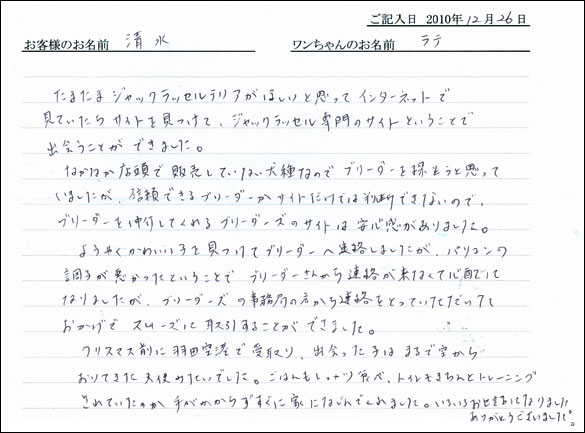 ご記入日 2010年12月26日
お客様のお名前 清水 ワンちゃんのお名前 ラテ
たまたま ジャックラッセルテリアがほしいと思って インターネットで
見ていたら サイトを見つけて、ジャックラッセル専門のサイト ということで
出会うことが できました。
なかなか店頭で 販売していない犬種なので ブリーダーを探そうと思って
いましたが、信頼できるブリーダーかサイトだけでは判断できないので、
ブリーダーを仲介してくれるブリーダーズのサイトは安心感がありました。
ようやくかわいい子を見つけてブリーダーへ連絡しましたが、パソコンの
調子が悪かったということで ブリーダーさんから連絡が来なくて心配に
なりましたが、ブリーダーズの事務局の方から連絡をとっていただいて
おかげで スムーズに取引することができました。
クリスマス前に羽田空港で受取り、出会った子は まるで空から
おりてきた天使みたいでした。ごはんもしっかり食べ、トイレもきちんとトレーニング
されていたのか 手がかからずすぐに家になじんでくれました。いろいろお世話になりました
ありがとうございました。